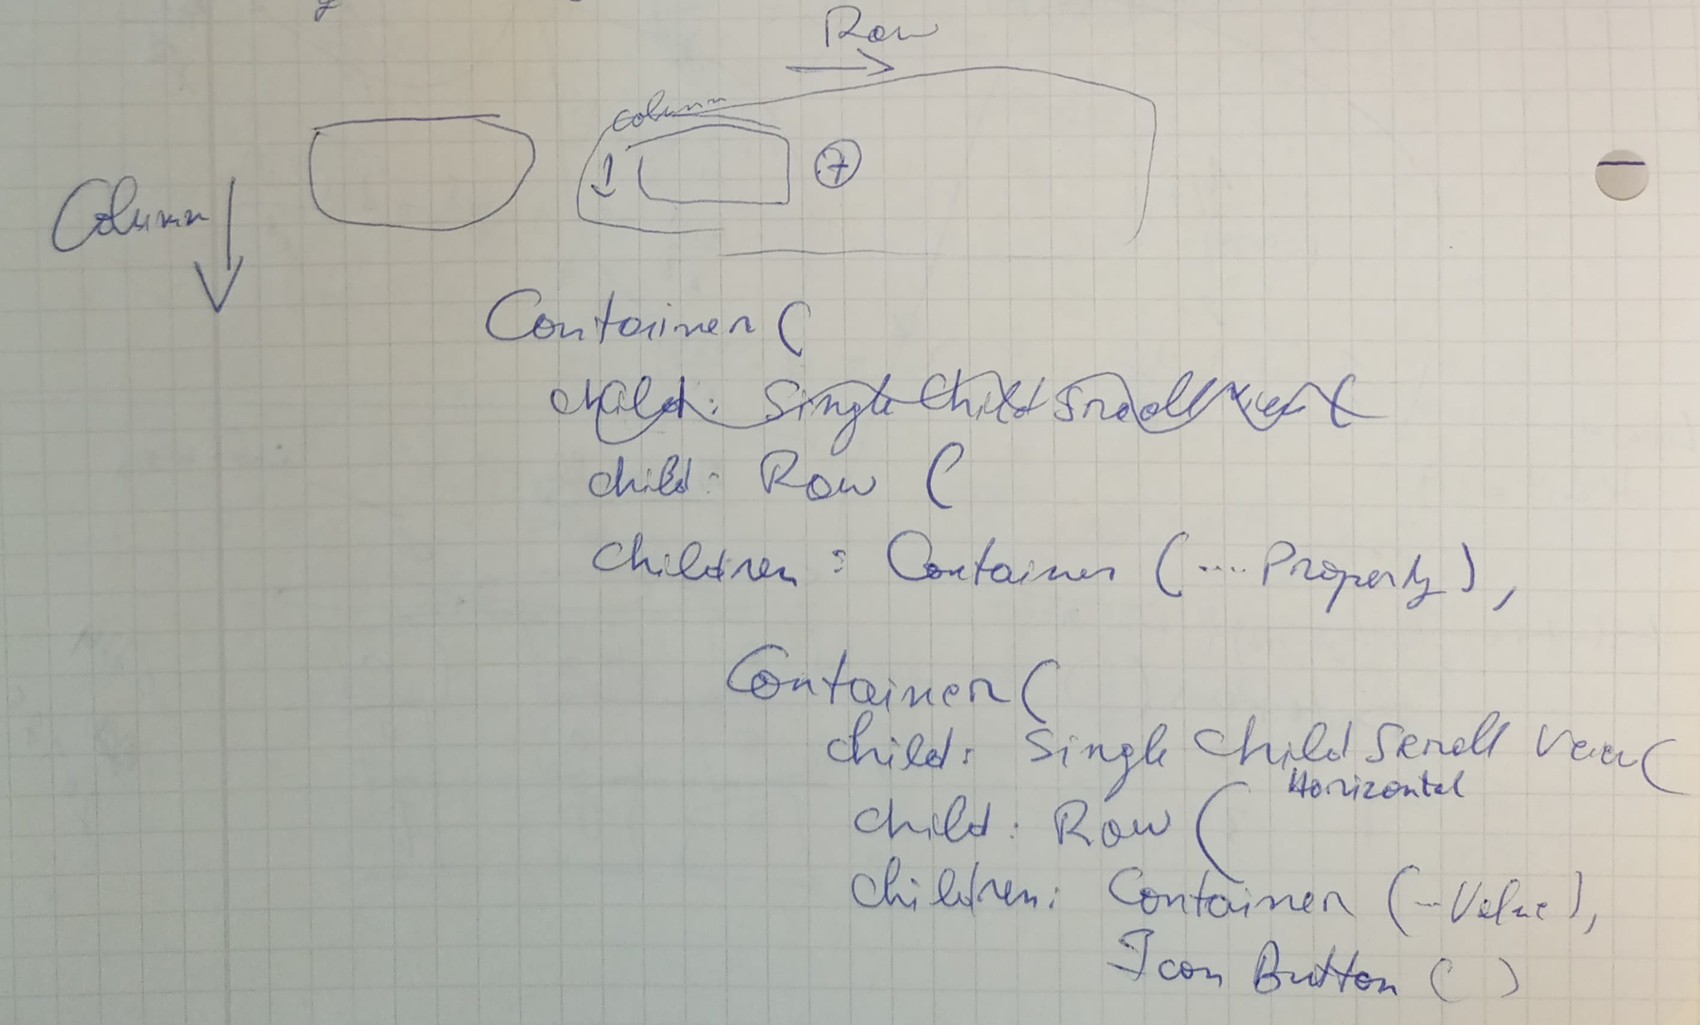 Row
column
+
Column
Container (
child: Single Child Scroll View (
child: Row (
children : Container (.... Property),
Container (
child: Single Child Scroll View (
Horizontal
child: Row (
children: Container (... Value),
Icon Button ( )